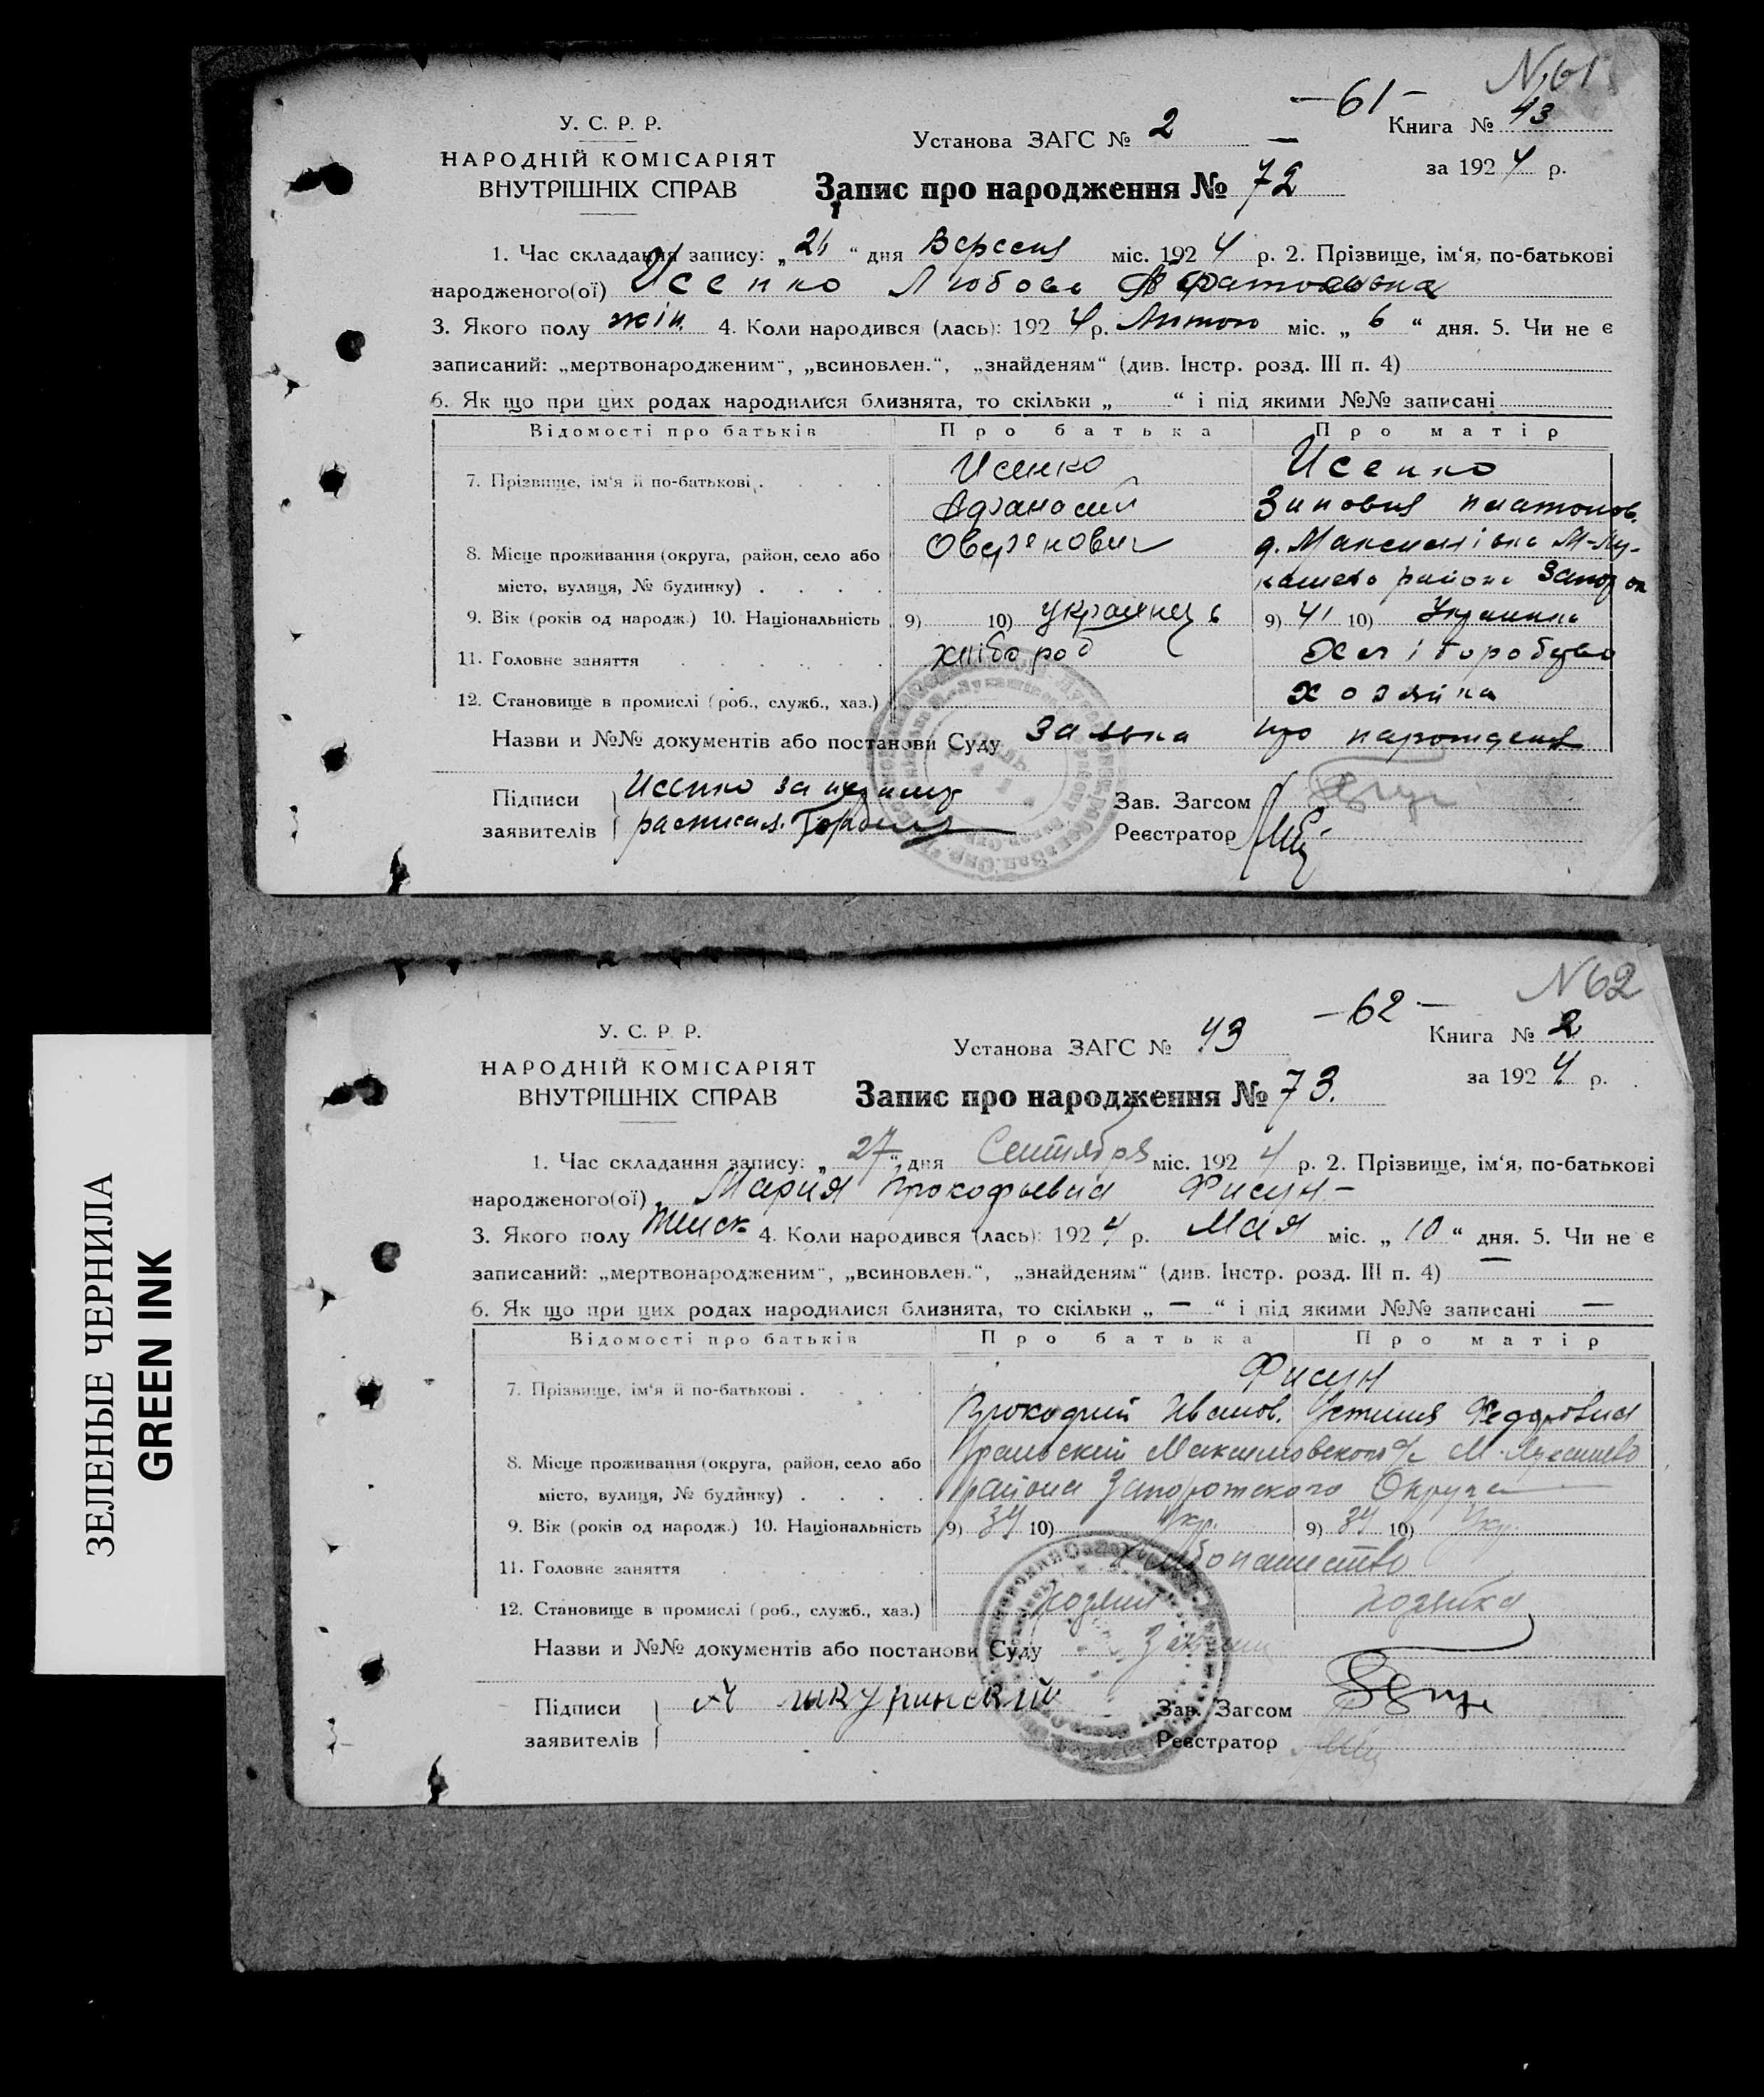 N 61
— 61 —
У. С. Р. Р.
НАРОДНІЙ КОМІСАРІЯТ
ВНУТРІШНІХ СПРАВ
Установа ЗАГС № 2
Книга № 43
за 1924 р.
Запис про народження № 72
1. Час складання запису: „ 26 “ дня Вересня міс. 1924 р. 2. Прізвище, ім‘я, по-батькові
народженого(ої) Исенко Любовь
3. Якого полу жін. 4. Коли народився (лась): 1924 р. Лютого міс. „ 6 “ дня. 5. Чи не є
записаний: „мертвонародженим“, „всиновлен.“, „знайденям“ (див. Інстр. розд. III п. 4)
6. Як що при цих родах народилися близнята, то скільки „ “ і під якими №№ записані
Відомості про батьків Про батька Про матір
7. Прізвище, ім‘я й по-батькові Исенко Исенко
Афанасий Зиновия Платонов.
8. Місце проживання (округа, район, село або
місто, вулиця, № будинку) района
9. Вік (років од народж.) 10. Національність 9) 10) украинец 9) 41 10) Украинка
11. Головне заняття хлібороб
12. Становище в промислі (роб., служб., хаз.) хозяйка
Назви и №№ документів або постанови Суду Заява про народження
Підписи
заявителів
Исенко за неграмот
расписался
Зав. Загсом
Реєстратор
N 62
— 62 —
У. С. Р. Р.
НАРОДНІЙ КОМІСАРІЯТ
ВНУТРІШНІХ СПРАВ
Установа ЗАГС № 43
Книга № 2
за 1924 р.
Запис про народження № 73.
1. Час складання запису: „ 27 “ дня Сентября міс. 1924 р. 2. Прізвище, ім‘я, по-батькові
народженого(ої) Мария Прокофьевна Фисун —
3. Якого полу Женск 4. Коли народився (лась): 1924 р. Мая міс. „ 10 “ дня. 5. Чи не є
записаний: „мертвонародженим“, „всиновлен.“, „знайденям“ (див. Інстр. розд. III п. 4) —
6. Як що при цих родах народилися близнята, то скільки „ — “ і під якими №№ записані —
Відомості про батьків Про батька Про матір
7. Прізвище, ім‘я й по-батькові Фисун
Прокофий Иванов. Устиния Федоровна
8. Місце проживання (округа, район, село або
місто, вулиця, № будинку) района Запорожского Округа
9. Вік (років од народж.) 10. Національність 9) 34 10) Укр. 9) 34 10) Укр.
11. Головне заняття Хлебопашество
12. Становище в промислі (роб., служб., хаз.) хозяин хозяйка
Назви и №№ документів або постанови Суду
Підписи
заявителів
Шкуринский
Зав. Загсом
Реєстратор
ЗЕЛЕНЫЕ ЧЕРНИЛА
GREEN INK